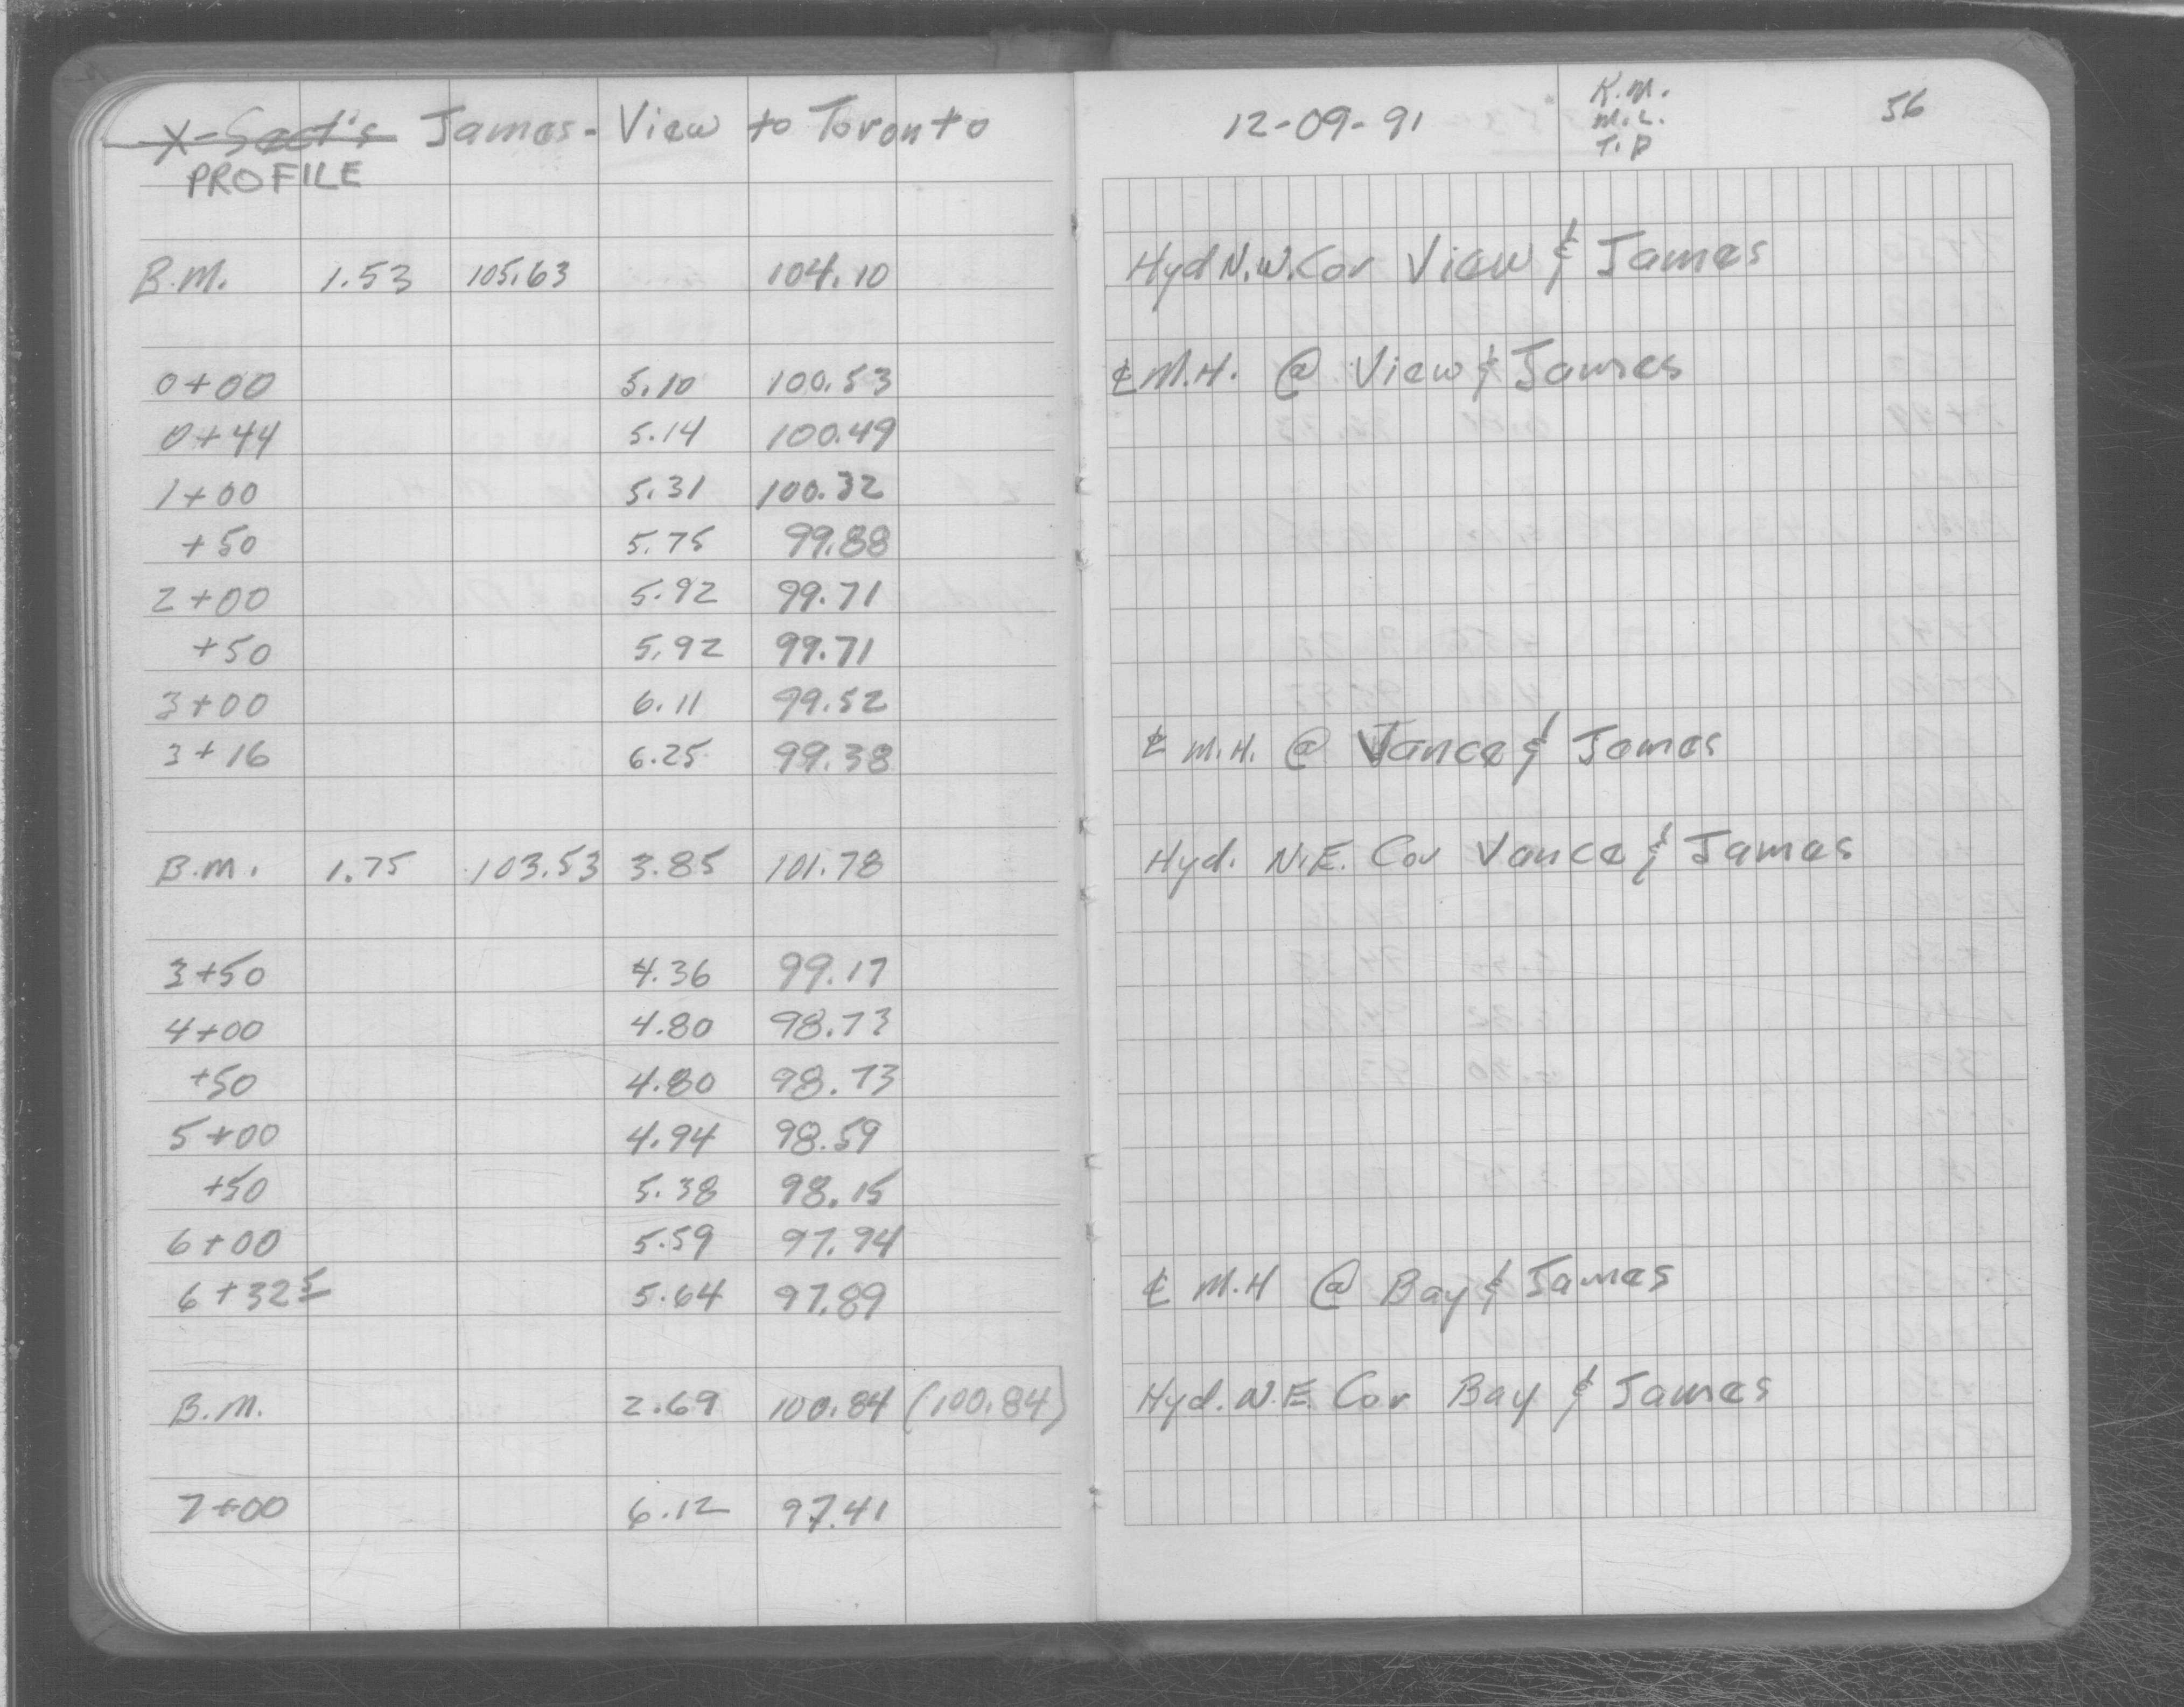 X-Sect's James - View to Toronto
PROFILE
B.M. 1.53 105.63 104.10
0+00 5.10 100.53
0+44 5.14 100.49
1+00 5.31 100.32
+50 5.75 99.88
2+00 5.92 99.71
+50 5.92 99.71
3+00 6.11 99.52
3+16 6.25 99.38
B.M. 1.75 103.53 3.85 101.78
3+50 4.36 99.17
4+00 4.80 98.73
+50 4.80 98.73
5+00 4.94 98.59
+50 5.38 98.15
6+00 5.59 97.94
6+32 5 5.64 97.89
B.M. 2.69 100.84 (100.84)
7+00 6.12 97.41
12-09-91
K.M.
M.L.
T.P
56
Hyd N.W. Cor View & James
℄ M.H. @ View & James
℄ M.H. @ Vance & James
Hyd. N.E. Cor Vance & James
℄ M.H @ Bay & James
Hyd. N.E. Cor Bay & James